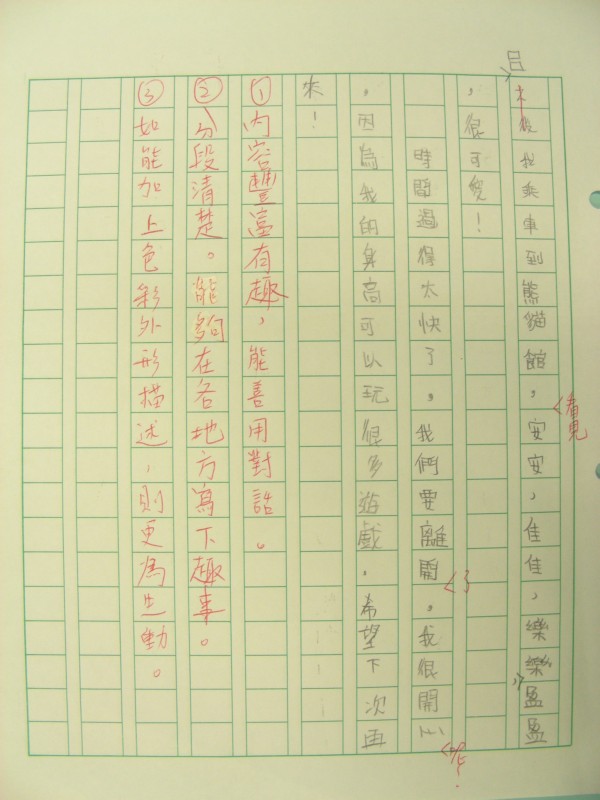 最後我乘車到熊貓館，安安，佳佳，樂樂盈盈
，很可愛！
時間過得太快了。我們要離開。我很開心
，因為我的身高可以玩很多遊戲。希望下次再
來！
①內容豐富有趣，能善用對話。
②分段清楚。能夠在各地方寫下趣事。
③如能加上色彩外形描述，則更為生動。
看見
了